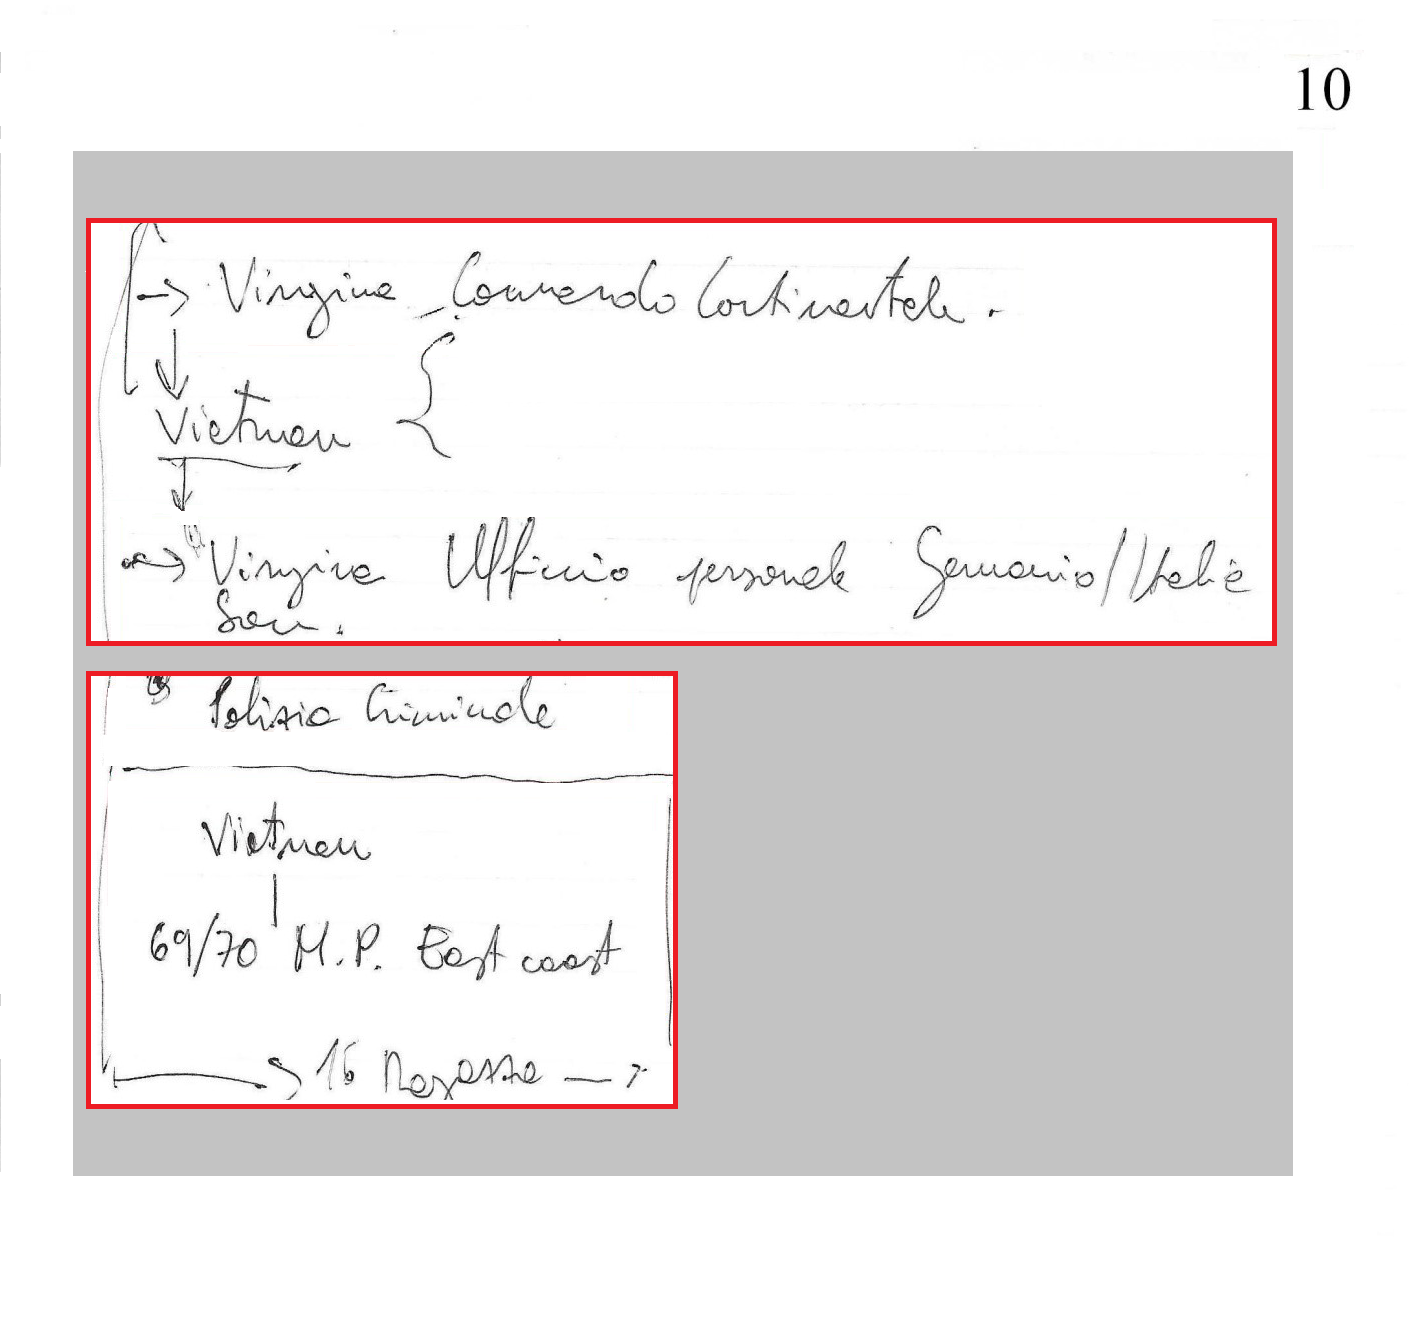 10
→ Virginia - Commando Continentale.
Vietnam {
→ Virginia Ufficio personale Germania/Italia
Polizia Criminale
Vietnam
69/70 M.P. East coast
→ 16 Ragazze →